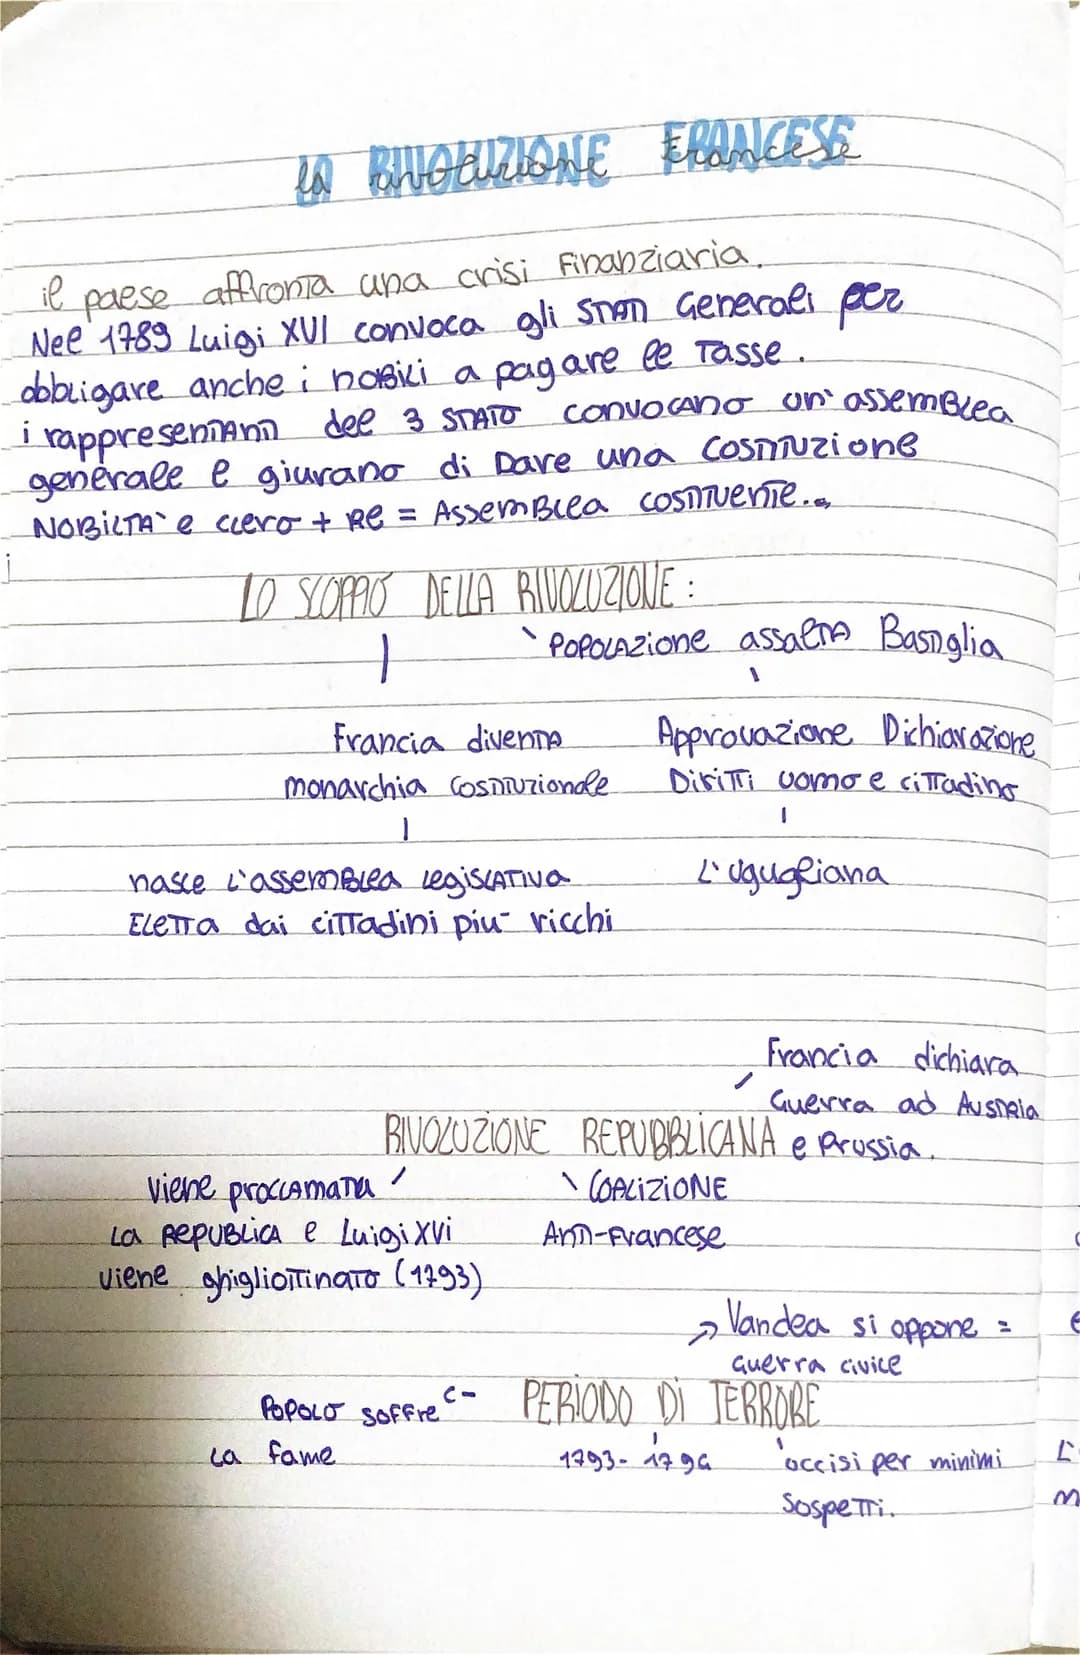 la RIVOLUZIONE FRANCESE
la rivoluzione francese
il paese affronta una crisi Finanziaria.
Nel 1789 Luigi XVI convoca gli STATI Generali per
obbligare anche i nobili a pagare le Tasse.
i rappresentanti del 3 STATO convocano un'assemblea
generale e giurano di Dare una Costituzione
NOBILTA' e clero + Re = Assemblea costituente.
LO SCOPPIO DELLA RIVOLUZIONE:
POPOLAZIONE assalta Bastiglia
Francia diventa
monarchia Costituzionale
Approvazione Dichiarazione
Diritti uomo e cittadino
nasce l'assemblea legislativa
Eletta dai cittadini piu' ricchi
L'uguagliana
Francia dichiara
Guerra ad Austria
e Prussia.
RIVOLUZIONE REPUBBLICANA
viene proclamata
la REPUBLICA e Luigi XVI
viene ghigliottinato (1793)
COALIZIONE
Anti-Francese
Vandea si oppone =
Guerra civile
PERIODO DI TERRORE
POPOLO soffre
la fame
1793-1794
occisi per minimi
Sospetti.